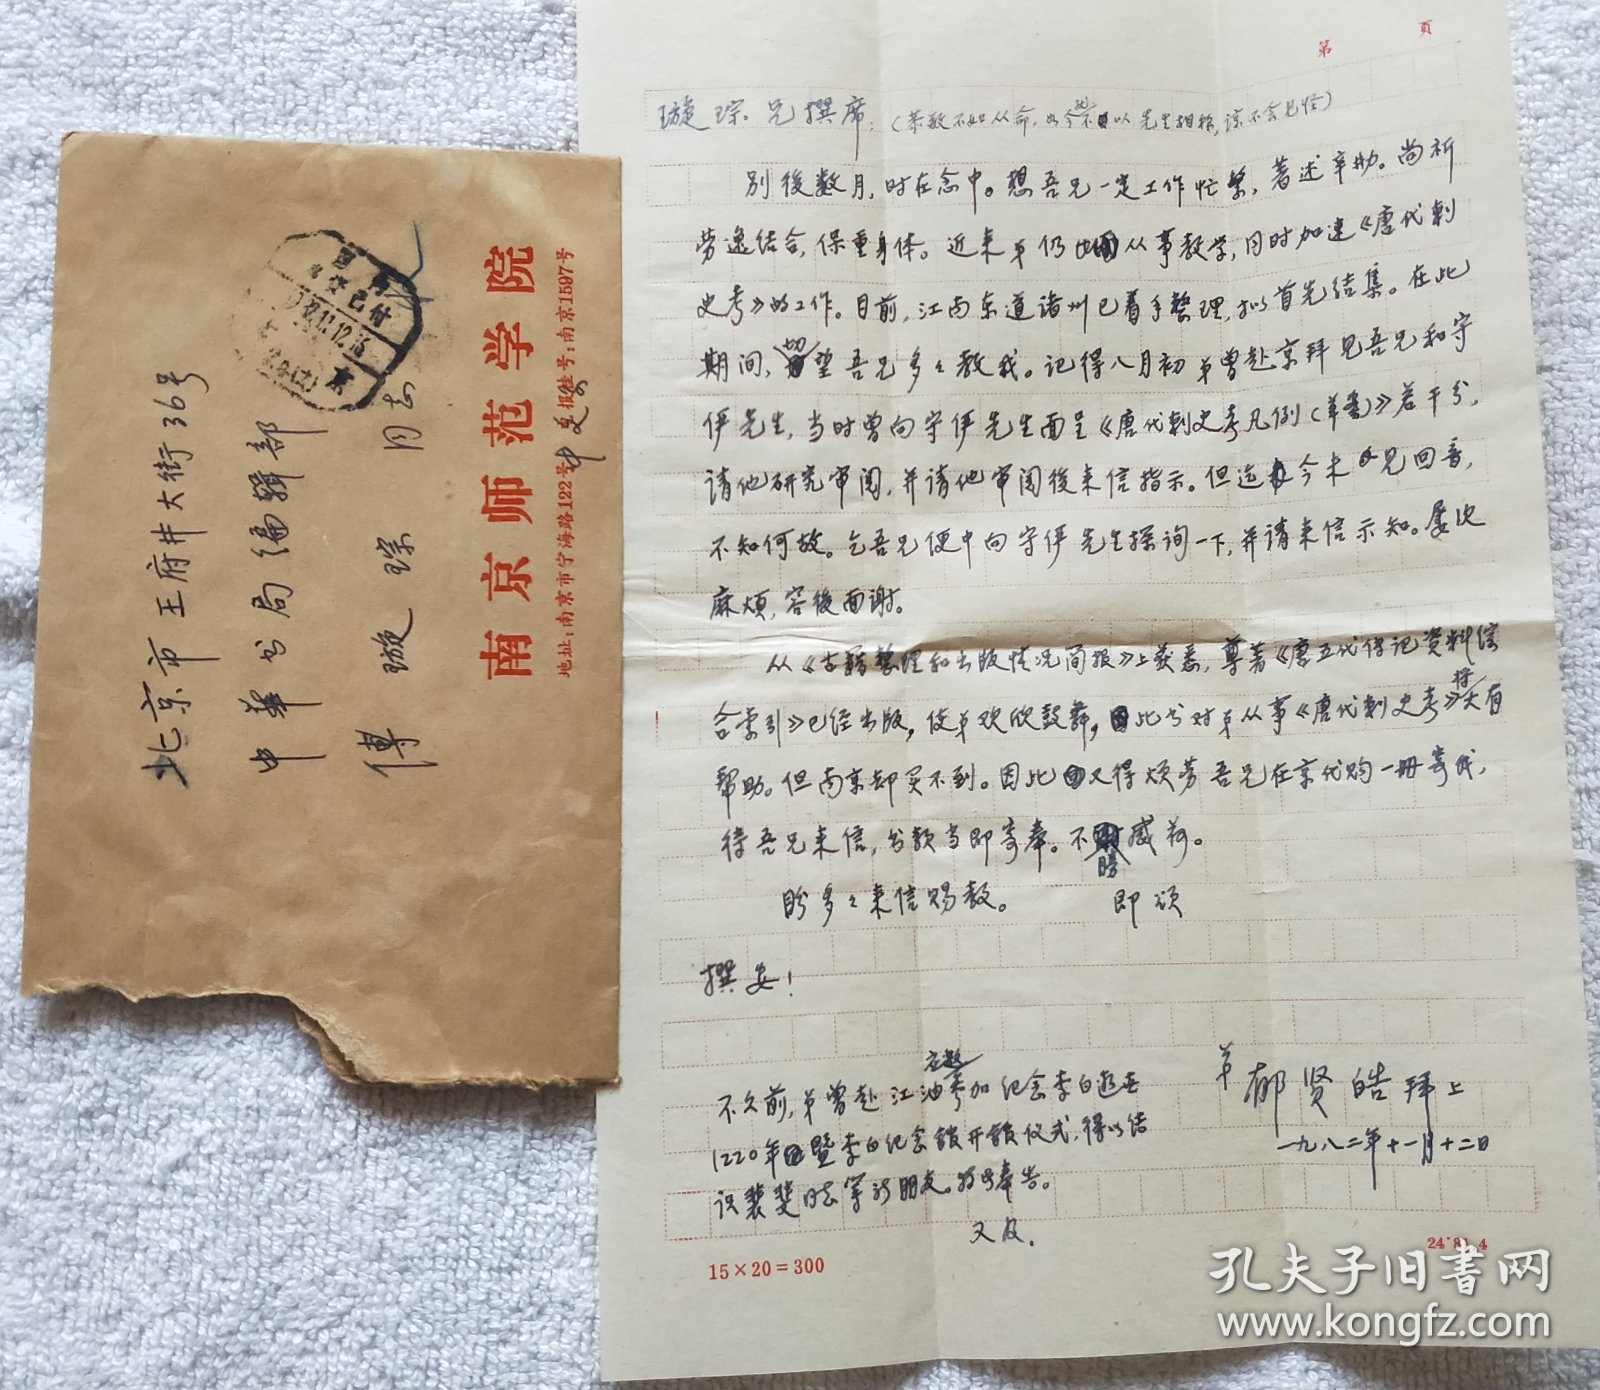 北京市王府井大街36号
中华书局编辑部
傅璇琮 同志
中文系
南京师范学院
地址:南京市宁海路122号 报挂号:南京1597号
第 页
璇琮兄撰席:(恭敬不如从命,如今不以先生相称,谅不会见怪)
别後数月,时在念中。想吾兄一定工作忙繁,著述辛勤。尚祈
劳逸结合,保重身体。近来弟仍从事教学,同时加速《唐代刺
史考》的工作。目前,江南东道诸州已着手整理,拟首先结集。在此
期间,切望吾兄多多教我。记得八月初弟曾赴京拜见吾兄和守
俨先生,当时曾向守俨先生面呈《唐代刺史考凡例(草案)》若干分,
请他研究审阅,并请他审阅後来信指示。但迄今未见回音,
不知何故。乞吾兄便中向守俨先生探询一下,并请来信示知。屡次
麻烦,容後面谢。
从《古籍整理和出版情况简报》上获悉,尊著《唐五代传记资料综
合索引》已经出版,使弟欢欣鼓舞,此书对弟从事《唐代刺史考》将大有
帮助。但南京却买不到。因此又得烦劳吾兄在京代购一册寄我,
待吾兄来信,书款当即寄奉。不胜感荷。
盼多多来信赐教。 即颂
撰安!
弟郁贤皓拜上
一九八二年十一月十二日
不久前,弟曾赴江油应邀参加纪念李白逝世
1220年暨李白纪念馆开馆仪式,得以结
识裴斐同志等新朋友。特此奉告。
又及.
15×20=300
孔夫子旧书网
www.kongfz.com